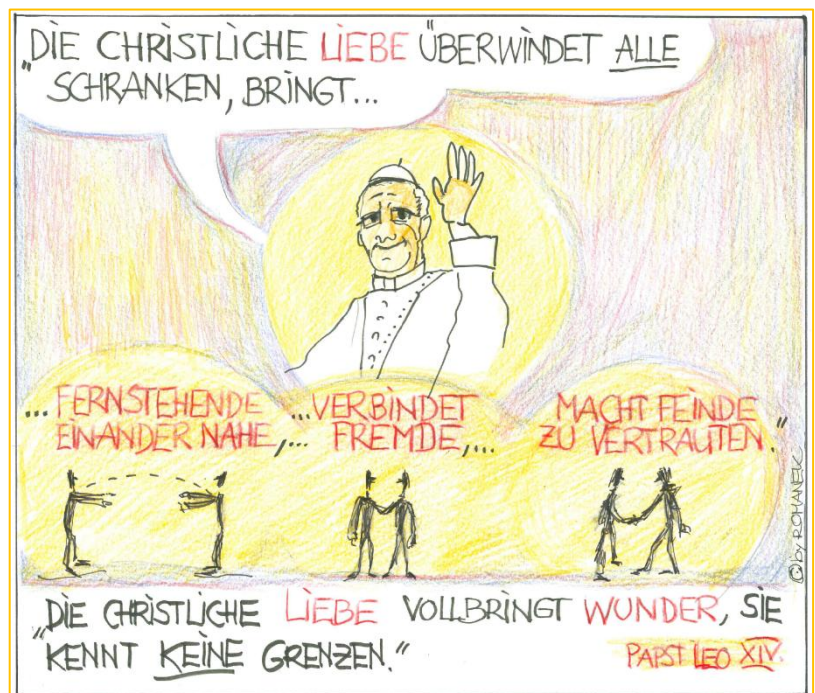 „DIE CHRISTLICHE LIEBE ÜBERWINDET ALLE
SCHRANKEN, BRINGT...
...FERNSTEHENDE
EINANDER NAHE,...
...VERBINDET
FREMDE,...
MACHT FEINDE
ZU VERTRAUTEN."
©by ROMANEK
„DIE CHRISTLICHE LIEBE VOLLBRINGT WUNDER, SIE
KENNT KEINE GRENZEN."
PAPST LEO XIV.